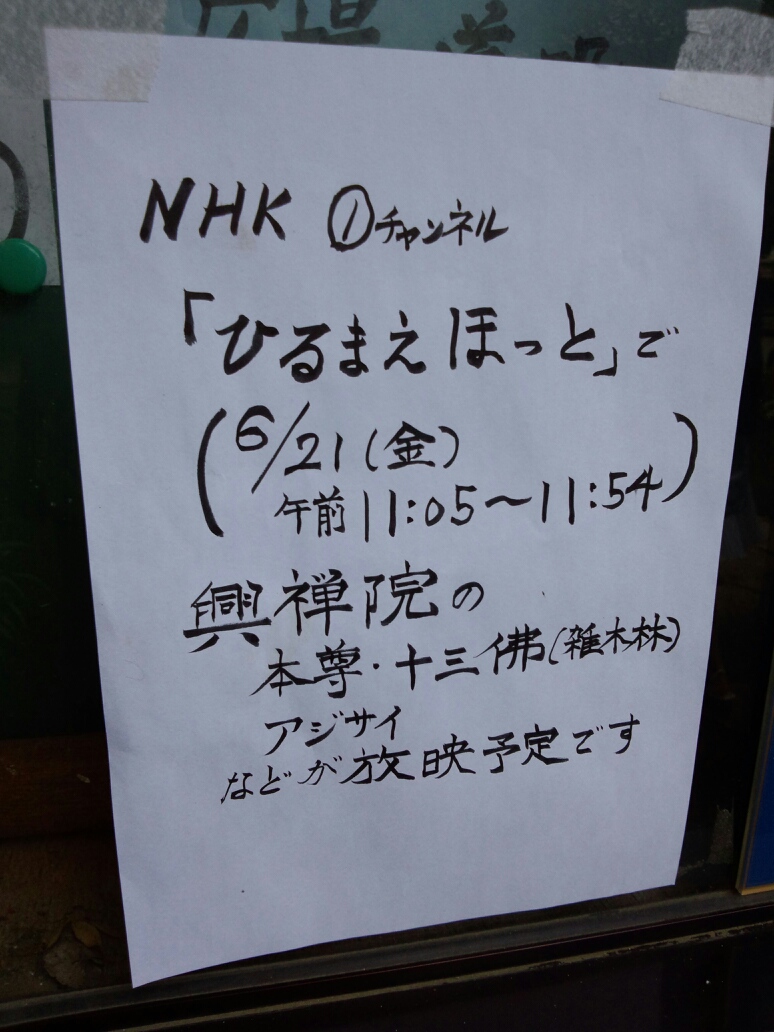 NHK ①チャンネル
「ひるまえほっと」で
(6/21(金)
午前11:05〜11:54)
興禅院の
本尊・十三佛(雑木林)
アジサイ
などが放映予定です